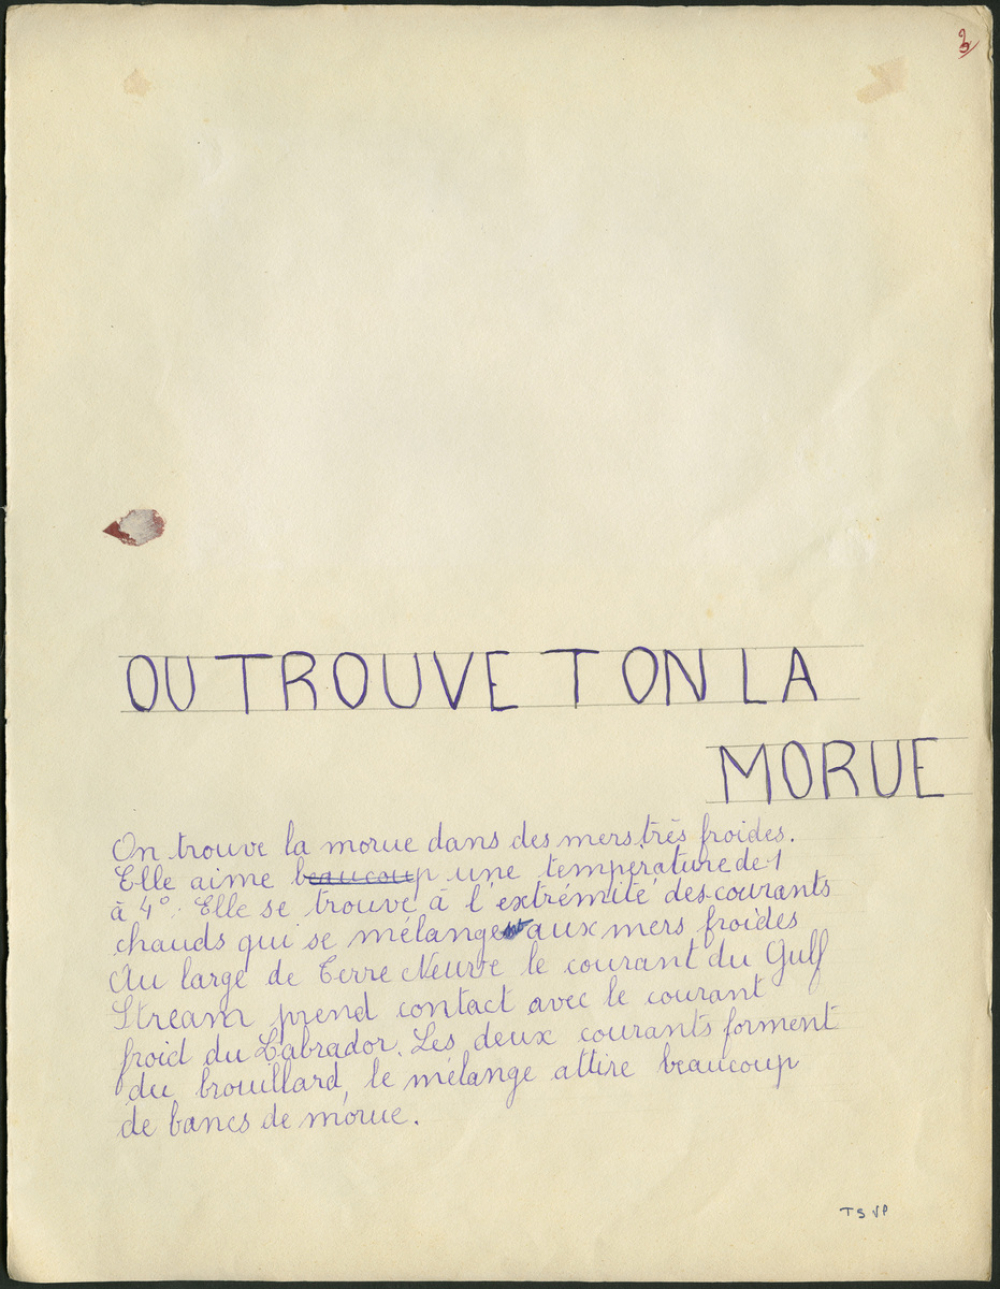 OU TROUVE T ON LA
MORUE
On trouve la morue dans des mers très froides.
Elle aime beaucoup une température de 1
à 4°. Elle se trouve à l'extrémité des courants
chauds qui se mélange aux mers froides
Au large de Terre Neuve le courant du Gulf
Stream prend contact avec le courant
froid du Labrador. Les deux courants forment
du brouillard, le mélange attire beaucoup
de bancs de morue.
TSVP